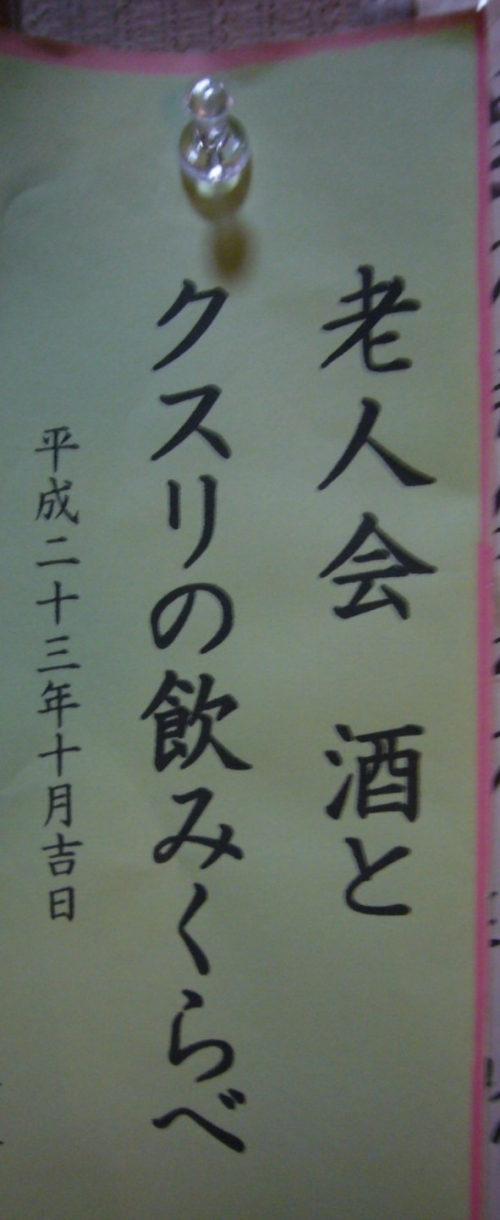 老人会 酒と
クスリの飲みくらべ
平成二十三年十月吉日